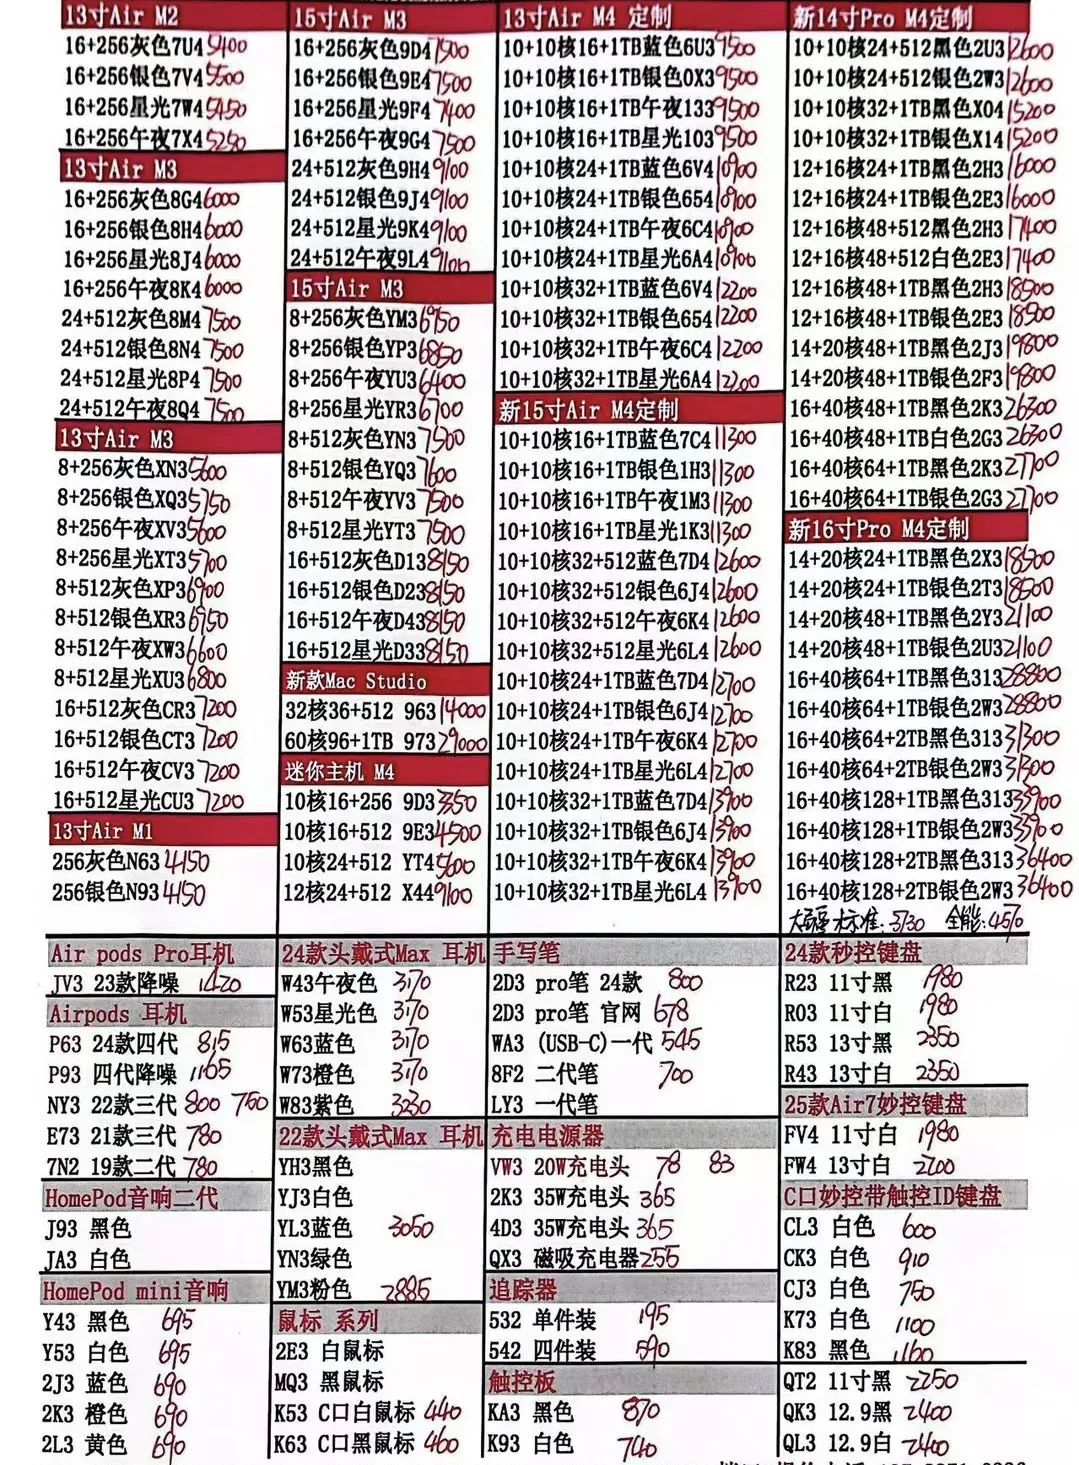 13寸Air M2
16+256灰色7U4 5400
16+256银色7V4 5500
16+256星光7W4 5450
16+256午夜7X4 5250
13寸Air M3
16+256灰色8G4 6000
16+256银色8H4 6000
16+256星光8J4 6000
16+256午夜8K4 6000
24+512灰色8M4 7500
24+512银色8N4 7500
24+512星光8P4 7500
24+512午夜8Q4 7500
13寸Air M3
8+256灰色XN3 5600
8+256银色XQ3 5750
8+256午夜XV3 5600
8+256星光XT3 5700
8+512灰色XP3 6900
8+512银色XR3 6950
8+512午夜XW3 6600
8+512星光XU3 6800
16+512灰色CR3 7200
16+512银色CT3 7200
16+512午夜CV3 7200
16+512星光CU3 7200
13寸Air M1
256灰色N63 4150
256银色N93 4150
15寸Air M3
16+256灰色9D4 7500
16+256银色9E4 7500
16+256星光9F4 7400
16+256午夜9G4 7500
24+512灰色9H4 9100
24+512银色9J4 9100
24+512星光9K4 9100
24+512午夜9L4 9100
15寸Air M3
8+256灰色YM3 6950
8+256银色YP3 6850
8+256午夜YU3 6400
8+256星光YR3 6700
8+512灰色YN3 7500
8+512银色YQ3 7600
8+512午夜YV3 7500
8+512星光YT3 7500
16+512灰色D13 8150
16+512银色D23 8150
16+512午夜D43 8150
16+512星光D33 8150
新款Mac Studio
32核36+512 963 14000
60核96+1TB 973 29000
迷你主机 M4
10核16+256 9D3 3350
10核16+512 9E3 4500
10核24+512 YT4 5600
12核24+512 X44 9100
13寸Air M4 定制
10+10核16+1TB蓝色6U3 9500
10+10核16+1TB银色0X3 9500
10+10核16+1TB午夜133 9500
10+10核16+1TB星光103 9500
10+10核24+1TB蓝色6V4 10900
10+10核24+1TB银色654 10900
10+10核24+1TB午夜6C4 10900
10+10核24+1TB星光6A4 10900
10+10核32+1TB蓝色6V4 12200
10+10核32+1TB银色654 12200
10+10核32+1TB午夜6C4 12200
10+10核32+1TB星光6A4 12200
新15寸Air M4定制
10+10核16+1TB蓝色7C4 11300
10+10核16+1TB银色1H3 11300
10+10核16+1TB午夜1M3 11300
10+10核16+1TB星光1K3 11300
10+10核32+512蓝色7D4 12600
10+10核32+512银色6J4 12600
10+10核32+512午夜6K4 12600
10+10核32+512星光6L4 12600
10+10核24+1TB蓝色7D4 12700
10+10核24+1TB银色6J4 12700
10+10核24+1TB午夜6K4 12700
10+10核24+1TB星光6L4 12700
10+10核32+1TB蓝色7D4 13900
10+10核32+1TB银色6J4 13900
10+10核32+1TB午夜6K4 13900
10+10核32+1TB星光6L4 13900
新14寸Pro M4定制
10+10核24+512黑色2U3 12600
10+10核24+512银色2W3 12600
10+10核32+1TB黑色X04 15200
10+10核32+1TB银色X14 15200
12+16核24+1TB黑色2H3 16000
12+16核24+1TB银色2E3 16000
12+16核48+512黑色2H3 17400
12+16核48+512白色2E3 17400
12+16核48+1TB黑色2H3 18500
12+16核48+1TB银色2E3 18500
14+20核48+1TB黑色2J3 19800
14+20核48+1TB银色2F3 19800
16+40核48+1TB黑色2K3 26300
16+40核48+1TB白色2G3 26300
16+40核64+1TB黑色2K3 27700
16+40核64+1TB银色2G3 27700
新16寸Pro M4定制
14+20核24+1TB黑色2X3 18500
14+20核24+1TB银色2T3 18500
14+20核48+1TB黑色2Y3 21100
14+20核48+1TB银色2U3 21100
16+40核64+1TB黑色313 28800
16+40核64+1TB银色2W3 28800
16+40核64+2TB黑色313 31300
16+40核64+2TB银色2W3 31300
16+40核128+1TB黑色313 33900
16+40核128+1TB银色2W3 33900
16+40核128+2TB黑色313 36400
16+40核128+2TB银色2W3 36400
标准:3730 全能:4570
Air pods Pro耳机
JV3 23款降噪 1420
Airpods 耳机
P63 24款四代 815
P93 四代降噪 1165
NY3 22款三代 800 750
E73 21款三代 780
7N2 19款二代 780
HomePod音响二代
J93 黑色
JA3 白色
HomePod mini音响
Y43 黑色 695
Y53 白色 695
2J3 蓝色 690
2K3 橙色 690
2L3 黄色 690
24款头戴式Max 耳机
W43午夜色 3170
W53星光色 3170
W63蓝色 3170
W73橙色 3170
W83紫色 3230
22款头戴式Max 耳机
YH3黑色
YJ3白色
YL3蓝色 3050
YN3绿色
YM3粉色 2885
鼠标 系列
2E3 白鼠标
MQ3 黑鼠标
K53 C口白鼠标 440
K63 C口黑鼠标 460
手写笔
2D3 pro笔 24款 800
2D3 pro笔 官网 678
WA3 (USB-C)一代 545
8F2 二代笔 700
LY3 一代笔
充电电源器
VW3 20W充电头 78 83
2K3 35W充电头 365
4D3 35W充电头 365
QX3 磁吸充电器 255
追踪器
532 单件装 195
542 四件装 590
触控板
KA3 黑色 870
K93 白色 740
24款秒控键盘
R23 11寸黑 1980
R03 11寸白 1980
R53 13寸黑 2350
R43 13寸白 2350
25款Air7妙控键盘
FV4 11寸白 1980
FW4 13寸白 2200
C口妙控带触控ID键盘
CL3 白色 600
CK3 白色 910
CJ3 白色 750
K73 白色 1100
K83 黑色 1160
QT2 11寸黑 2250
QK3 12.9黑 2400
QL3 12.9白 2400